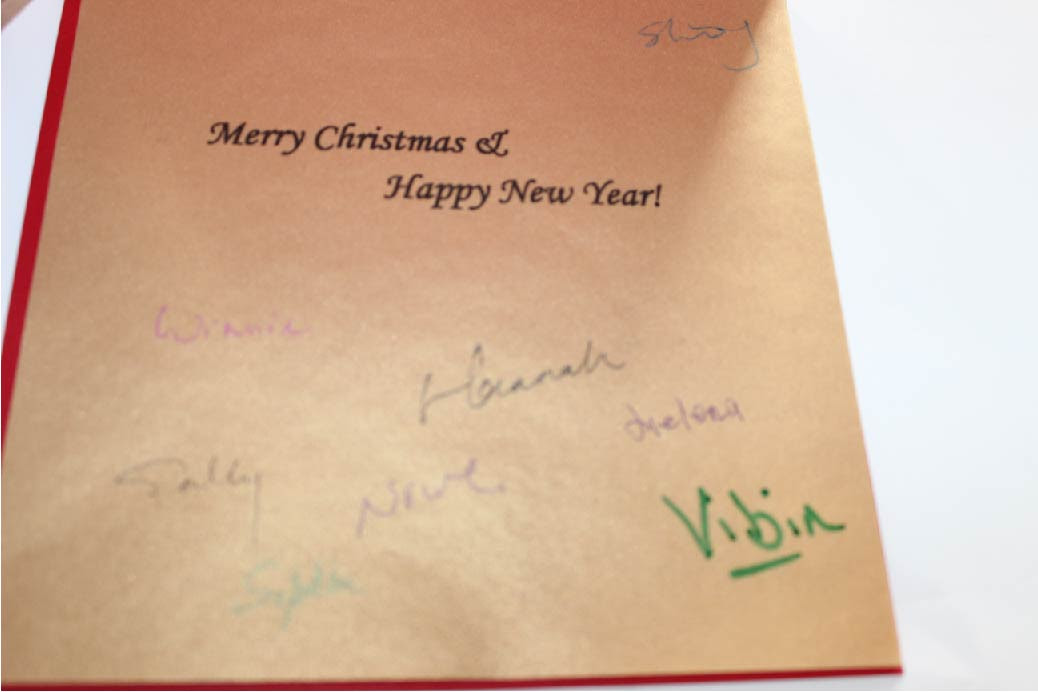 Merry Christmas &
Happy New Year!
Winnie
Hannah
Helena
Sally
Vibin